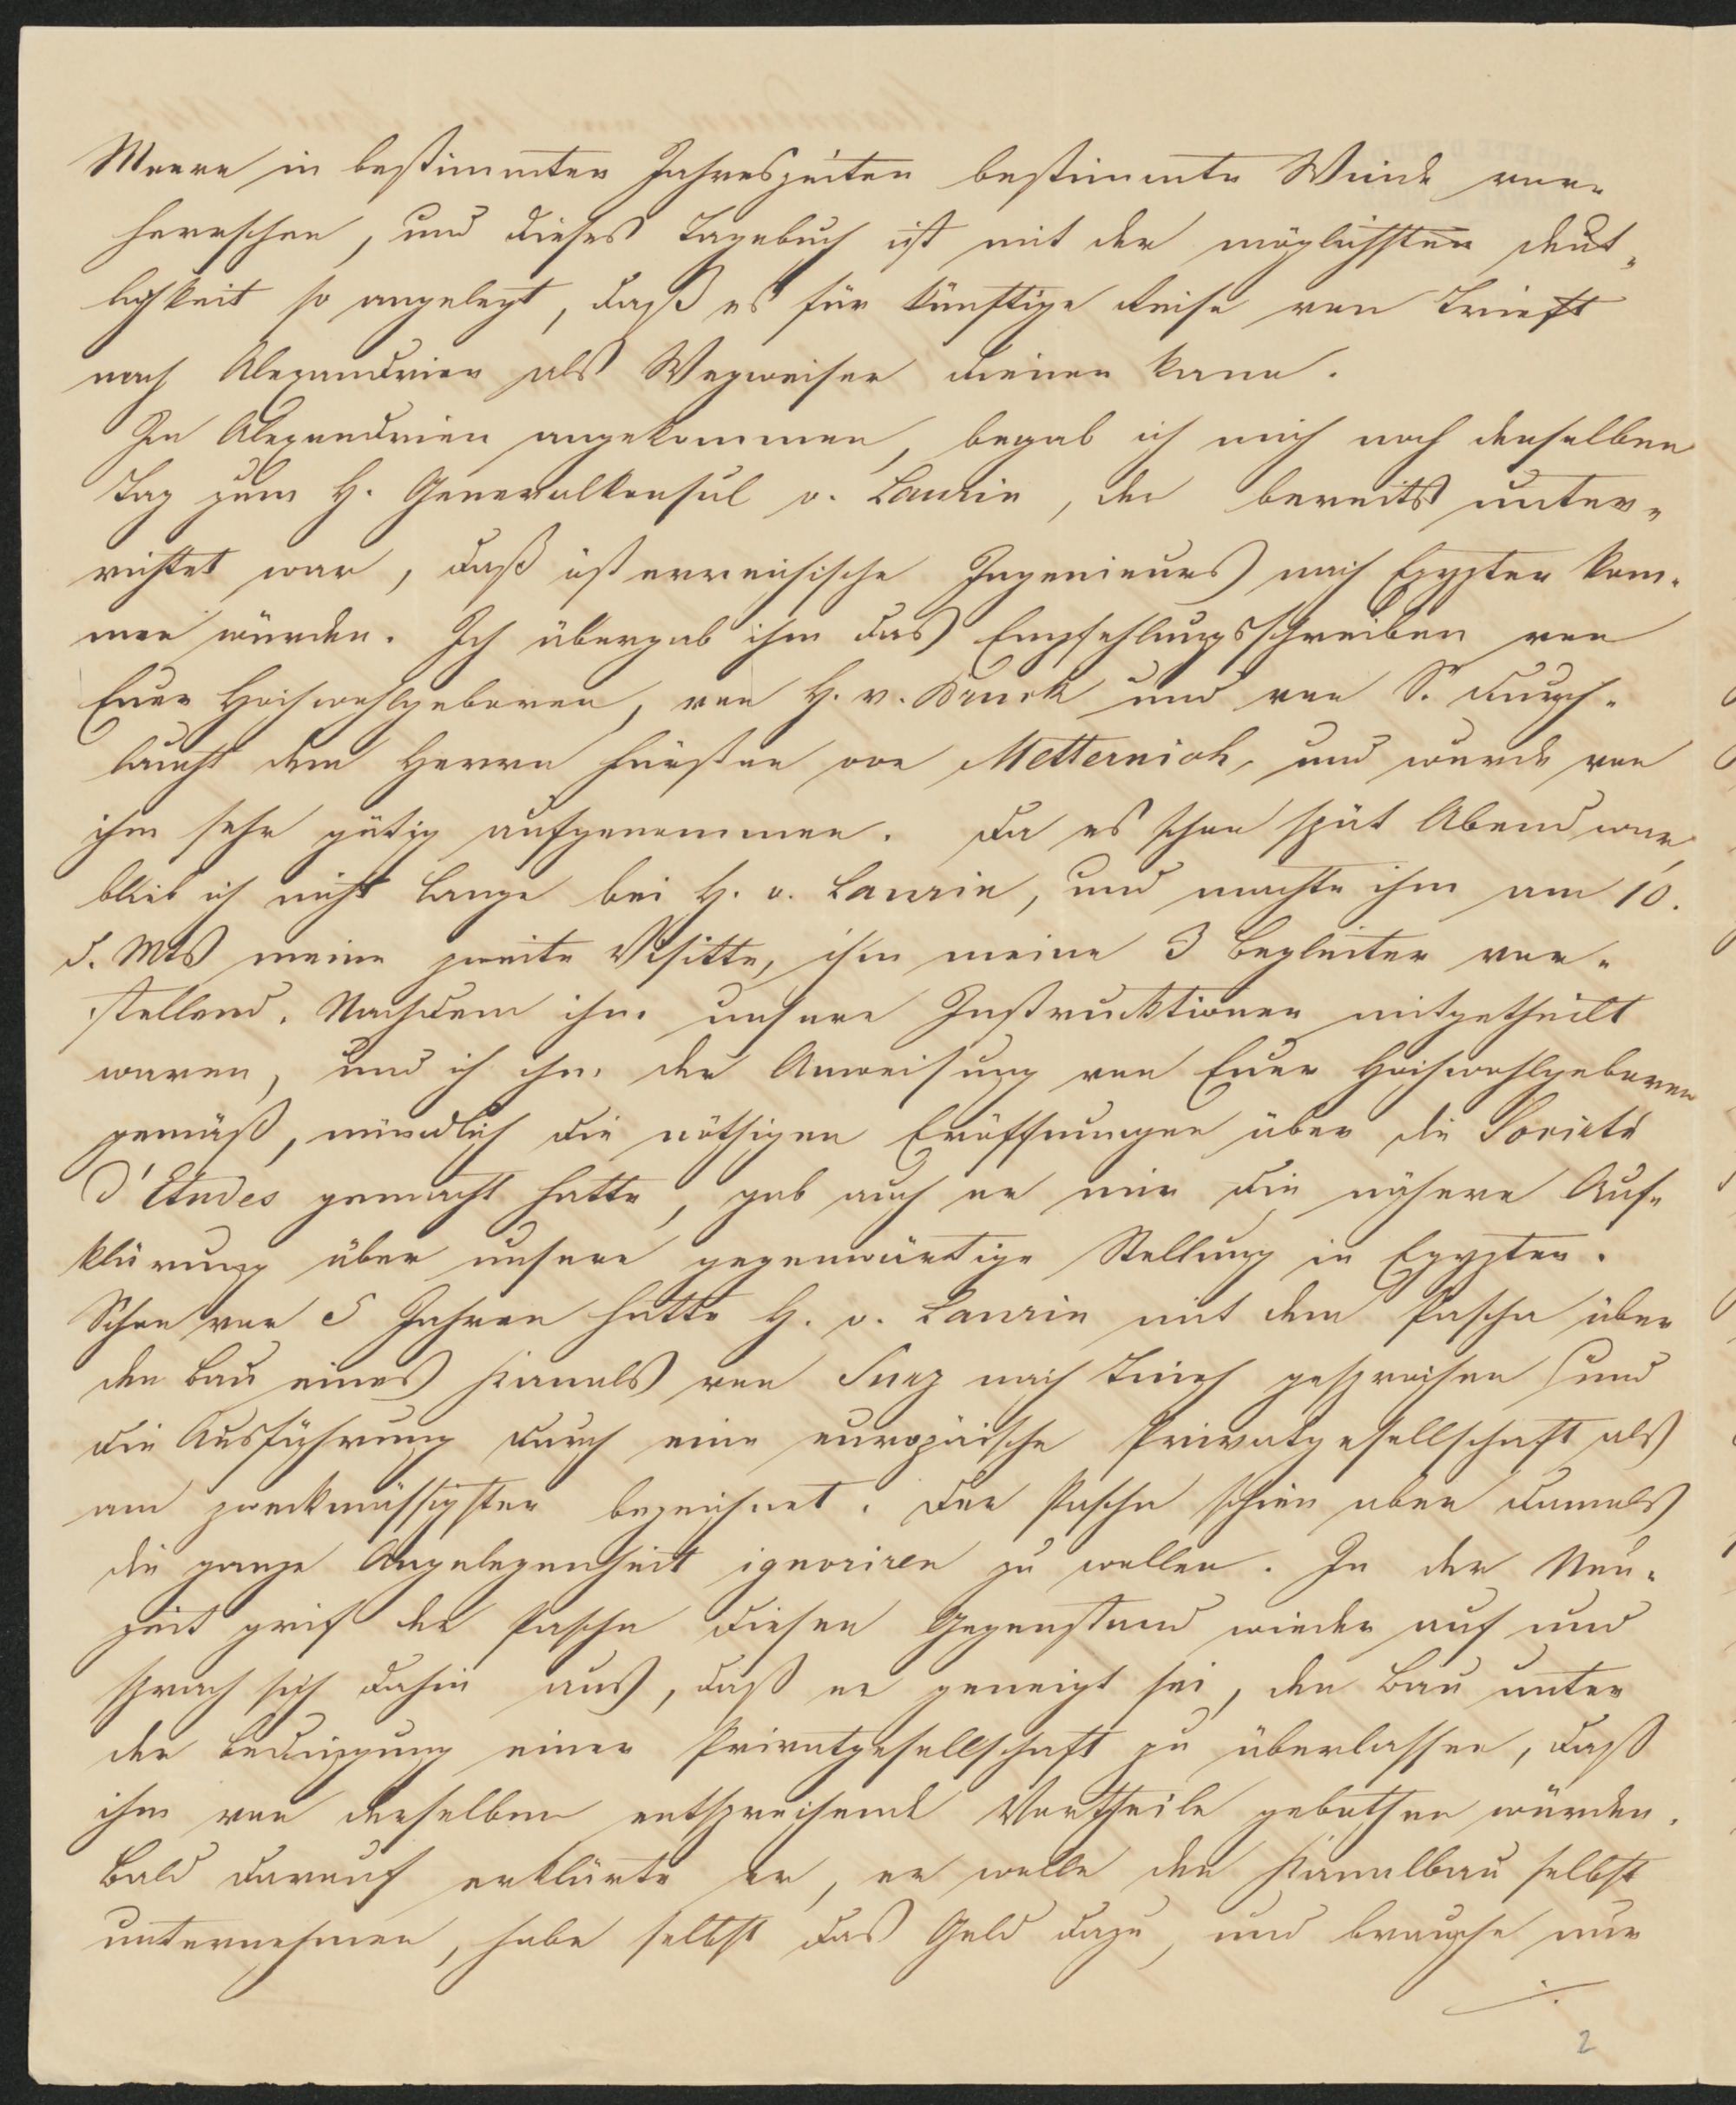 Meere in bestimmten Jahreszeiten bestimmte Winde vor-
herrschen, und dieses Tagebuch ist mit der möglichsten Deut-
lichkeit so angelegt, daß es für künftige Reise von Triest
nach Alexandrien als Wegweiser dienen kann.
In Alexandrien angekommen, begab ich mich noch denselben
Tag zum H. Generalkonsul v. Laurin, der bereits unter-
richtet war, daß österreichische Ingenieurs nach Egypten kom-
men würden. Ich übergab ihm das Empfehlungsschreiben von
Euer Hochwohlgeboren, von H. v. Bruck und von Sr. Durch-
laucht dem Herrn Fürsten von Metternich, und wurde von
ihm sehr gütig aufgenommen. Da es schon spät Abend war,
blieb ich nicht lange bei H. v. Laurin, und machte ihm am 10.
d. Mts meine zweite Visitte, ihm meine 3 Begleiter vor-
stellend. Nachdem ihm unsere Instruktionen mitgetheilt
waren, und ich ihm der Anweisung von Euer Hochwohlgeboren
gemäß, mündlich die nöthigen Eröffnungen über die Societé
d'Etudes gemacht hatte, gab auch er mir die nähere Auf-
klärung über unsere gegenwärtige Stellung in Egypten.
Schon vor 5 Jahren hatte H. v. Laurin mit dem Pascha über
den Bau eines Kanals von Suez nach Tineh gesprochen und
die Ausführung durch eine europäische Privatgesellschaft als
am zweckmässigsten bezeichnet. Der Pascha schien aber damals
die ganze Angelegenheit ignoriren zu wollen. In der Neu-
zeit grif der Pascha diesen Gegenstand wieder auf und
sprach sich dahin aus, daß er geneigt sei, den Bau unter
der Bedingung einer Privatgesellschaft zu überlassen, daß
ihm von derselben entsprechende Vortheile gebothen würden.
Bald darauf erklärte er, er wolle den Kanalbau selbst
unternehmen, habe selbst das Geld dazu, und brauche nur
./.
2